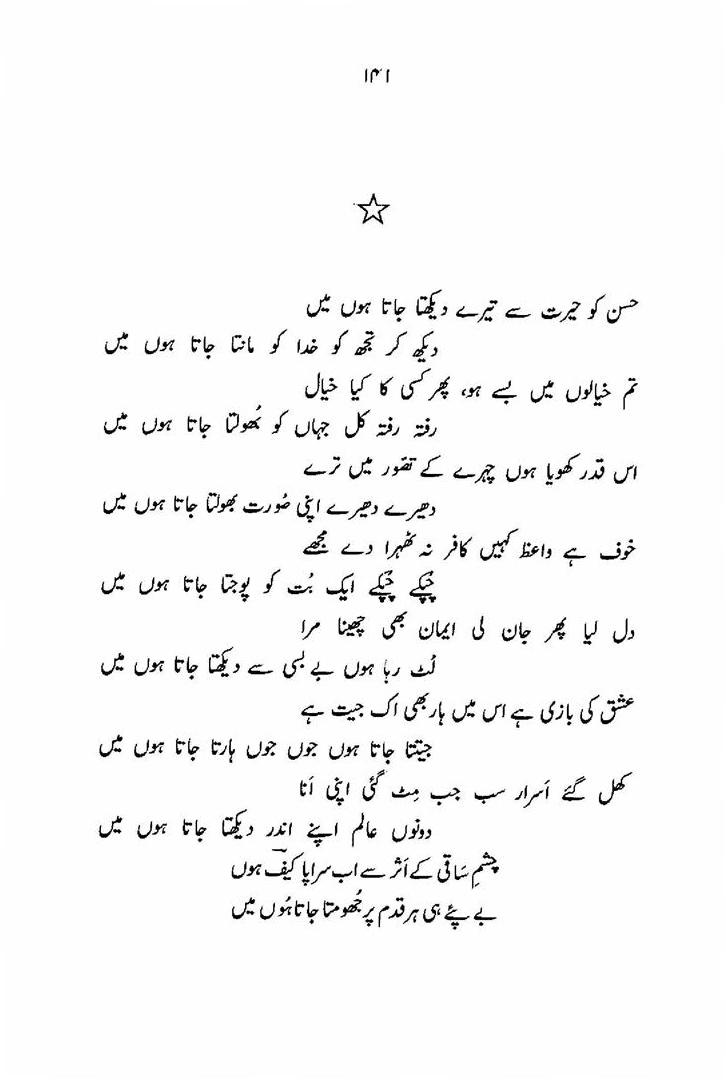 ۱۴۱
حسن کو حیرت سے تیرے دیکھتا جاتا ہوں میں
دیکھ کر تجھ کو خدا کو مانتا جاتا ہوں میں
تم خیالوں میں بسے ہو، پھر کسی کا کیا خیال
رفتہ رفتہ کل جہاں کو بُھولتا جاتا ہوں میں
اس قدر کھویا ہوں چہرے کے تصّور میں ترے
دھیرے دھیرے اپنی صُورت بھولتا جاتا ہوں میں
خوف ہے واعظ کہیں کافر نہ ٹھہرا دے مجھے
چُپکے چُپکے ایک بُت کو پوجتا جاتا ہوں میں
دل لیا پھر جان لی ایمان بھی چھینا مرا
لُٹ رہا ہوں بے بسی سے دیکھتا جاتا ہوں میں
عشق کی بازی ہے اس میں ہار بھی اک جیت ہے
جیتتا جاتا ہوں جوں جوں ہارتا جاتا ہوں میں
کھل گئے اَسرار سب جب مِٹ گئی اپنی اَنا
دونوں عالم اپنے اندر دیکھتا جاتا ہوں میں
چشمِ سَاقی کے اَثر سے اب سراپا کیف ہوں
بے پئے ہی ہر قدم پر جُھومتا جاتا ہُوں میں